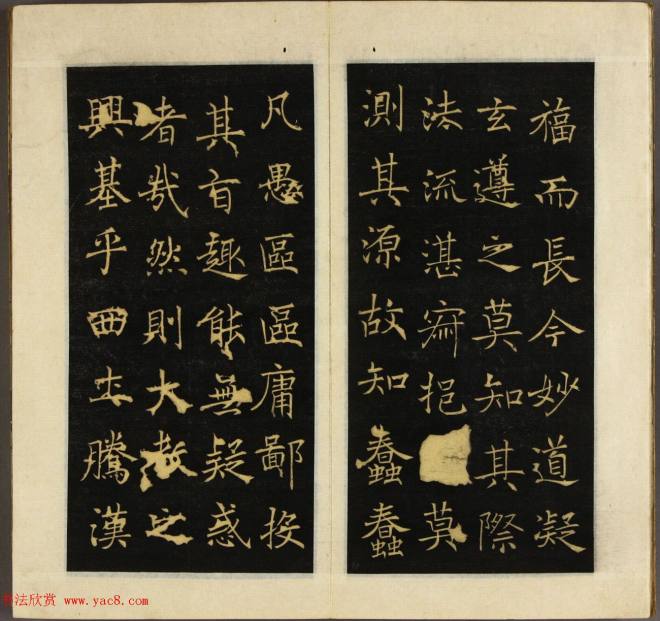 福而長今妙道凝
玄遵之莫知其際
法流湛寂挹莫
測其源故知蠢蠢
凡愚區區庸鄙投
其旨趣能無疑惑
者哉然則大教之
興基乎西土騰漢
书法欣赏 www.yac8.com